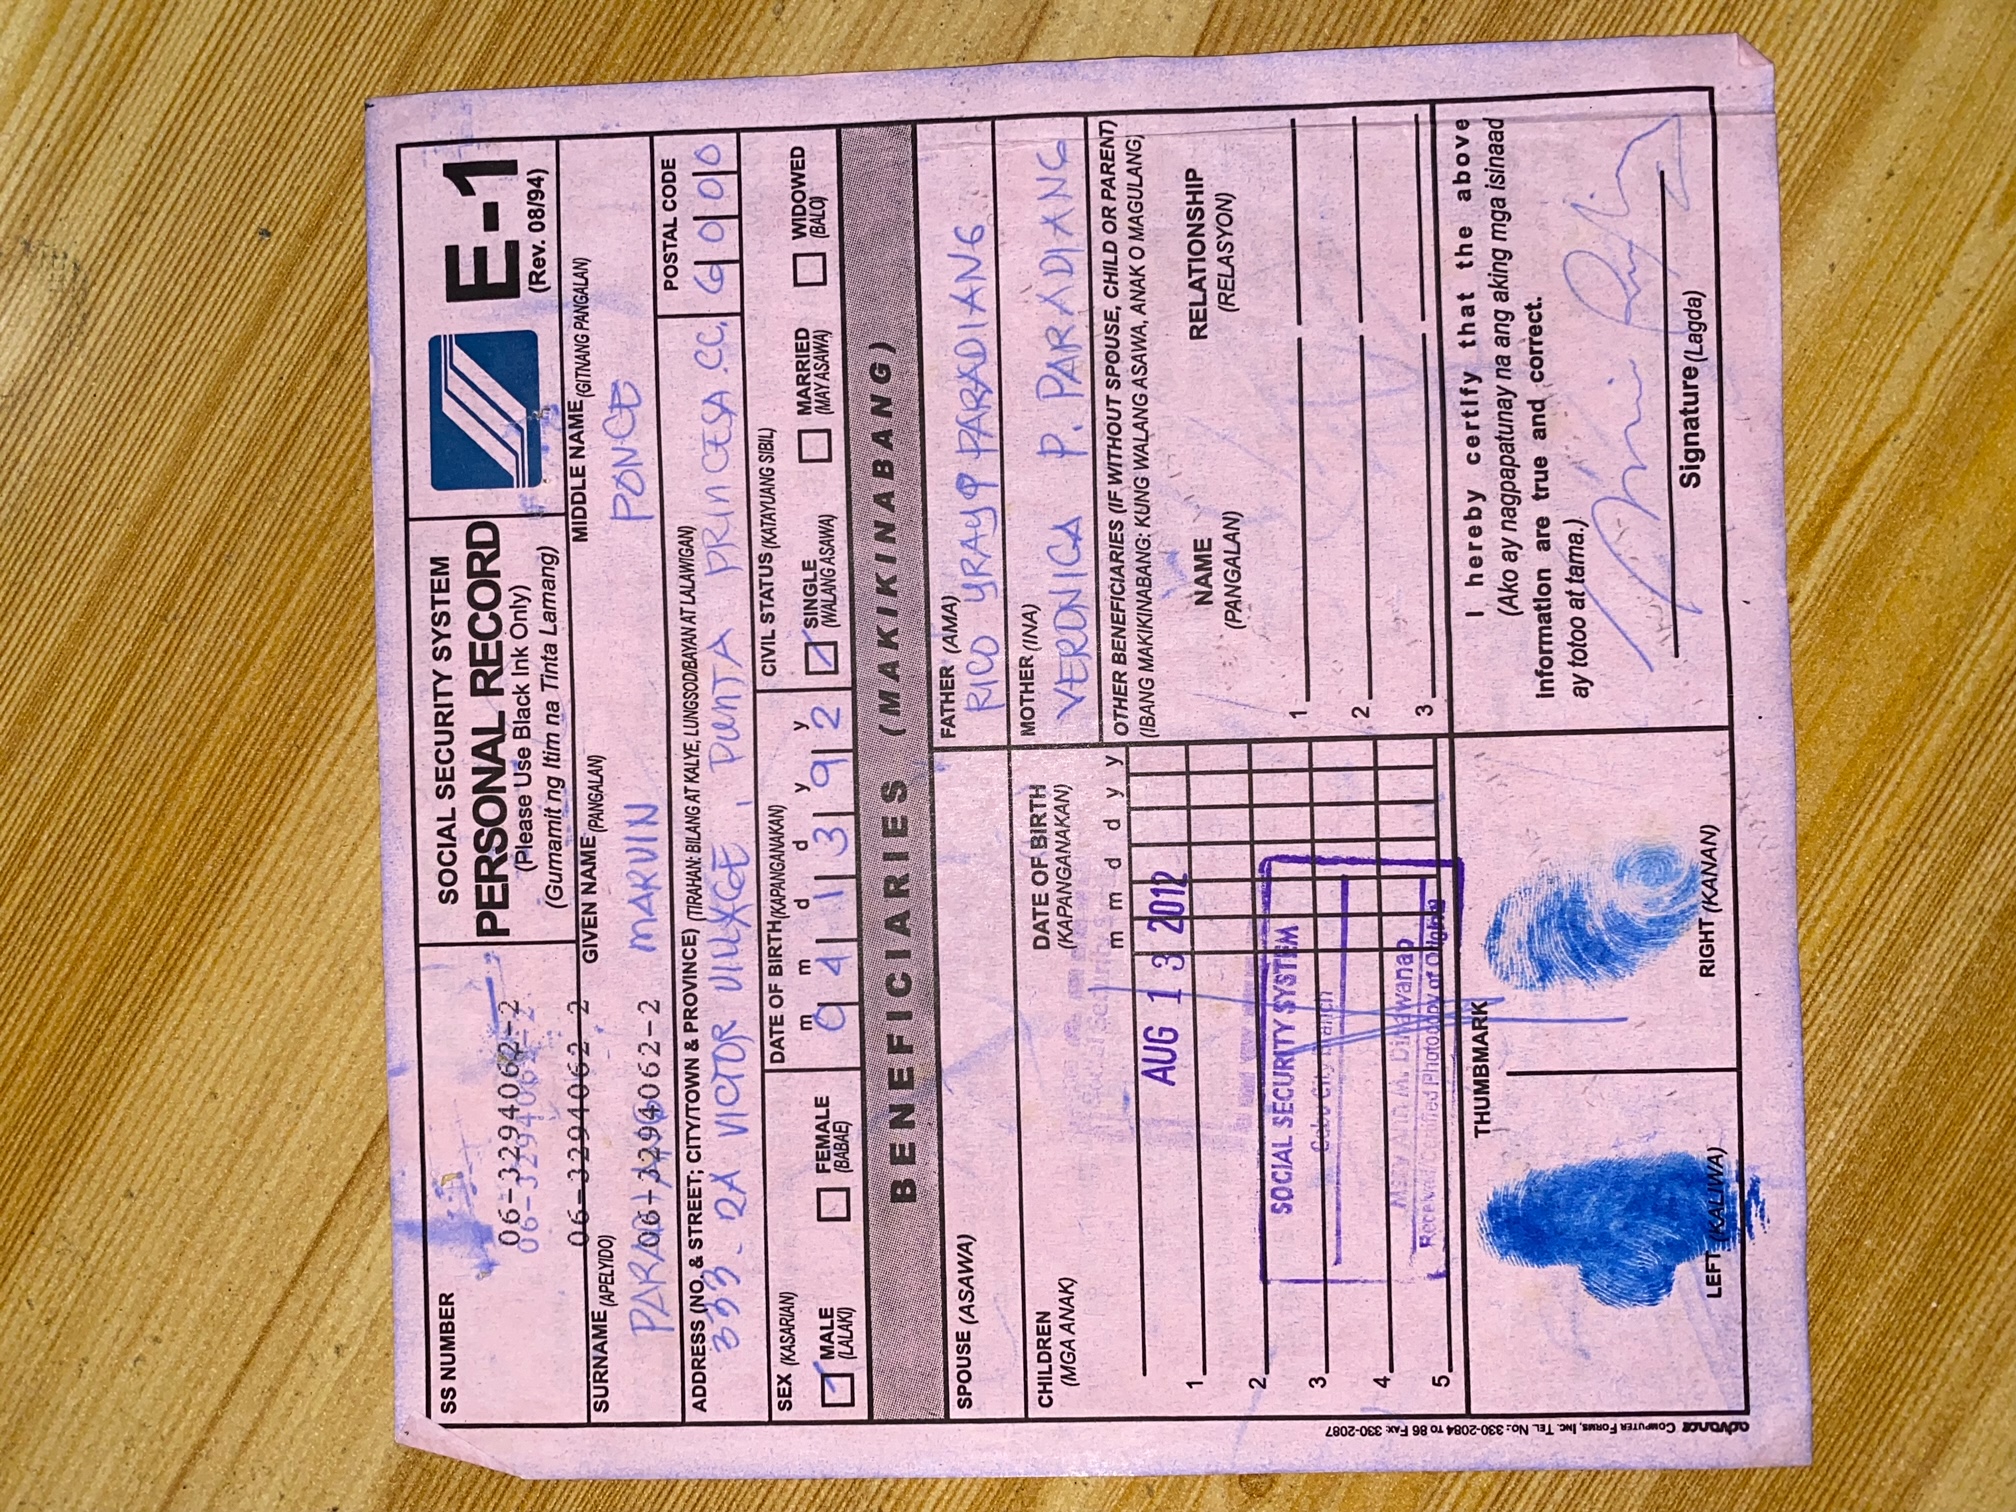 SS NUMBER
06-3294062-2
06-3294062-2
06-3294062-2
06-3294062-2
SOCIAL SECURITY SYSTEM
PERSONAL RECORD
(Please Use Black Ink Only)
(Gumamit ng Itim na Tinta Lamang)
E-1
(Rev. 08/94)
SURNAME (APELYIDO)
GIVEN NAME (PANGALAN)
MARVIN
MIDDLE NAME (GITNANG PANGALAN)
PONCE
ADDRESS (NO. & STREET; CITY/TOWN & PROVINCE) (TIRAHAN: BILANG AT KALYE, LUNGSOD/BAYAN AT LALAWIGAN)
333 - 2A VICTOR VILLAGE, PUNTA PRINCESA .CC,
POSTAL CODE
6000
SEX (KASARIAN)
MALE (LALAKI)
FEMALE (BABAE)
DATE OF BIRTH (KAPANGANAKAN)
m m d d y y
0 4 1 3 9 2
CIVIL STATUS (KATAYUANG SIBIL)
SINGLE (WALANG ASAWA)
MARRIED (MAY ASAWA)
WIDOWED (BALO)
BENEFICIARIES (MAKIKINABANG)
SPOUSE (ASAWA)
FATHER (AMA)
RICO YRAY P PARADIANG
CHILDREN (MGA ANAK)
DATE OF BIRTH (KAPANGANAKAN)
m m d d y y
MOTHER (INA)
VERONICA P. PARADIANG
1
2
3
4
5
AUG 13 2012
SOCIAL SECURITY SYSTEM
Cebu City Branch
Received Certified Photocopy of Original
OTHER BENEFICIARIES (IF WITHOUT SPOUSE, CHILD OR PARENT)
(IBANG MAKIKINABANG: KUNG WALANG ASAWA, ANAK O MAGULANG)
NAME (PANGALAN)
RELATIONSHIP (RELASYON)
1
2
3
THUMBMARK
LEFT (KALIWA)
RIGHT (KANAN)
I hereby certify that the above
(Ako ay nagpapatunay na ang aking mga isinaad
information are true and correct.
ay totoo at tama.)
Signature (Lagda)
advance COMPUTER FORMS, INC. TEL. NO.: 330-2084 TO 86 FAX: 330-2087